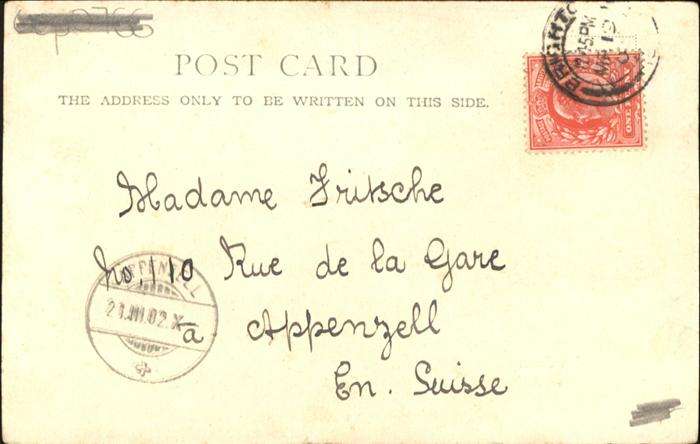 POST CARD
THE ADDRESS ONLY TO BE WRITTEN ON THIS SIDE.
BRIGHTO
15PM
MR 19
ONE
Madame Fritsche
No, 110 Rue de la Gare
à Appenzell
En. Suisse
APPENZELL
21.III.02.X